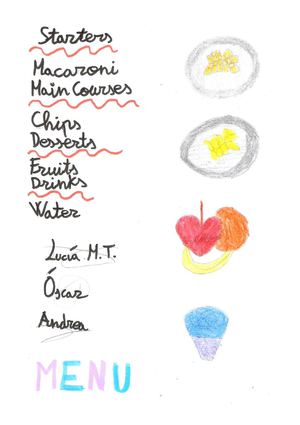 Starters
Macaroni
Main Courses
Chips
Desserts
Fruits
Drinks
Water
Lucía M.T.
Óscar
Andrea
MENU